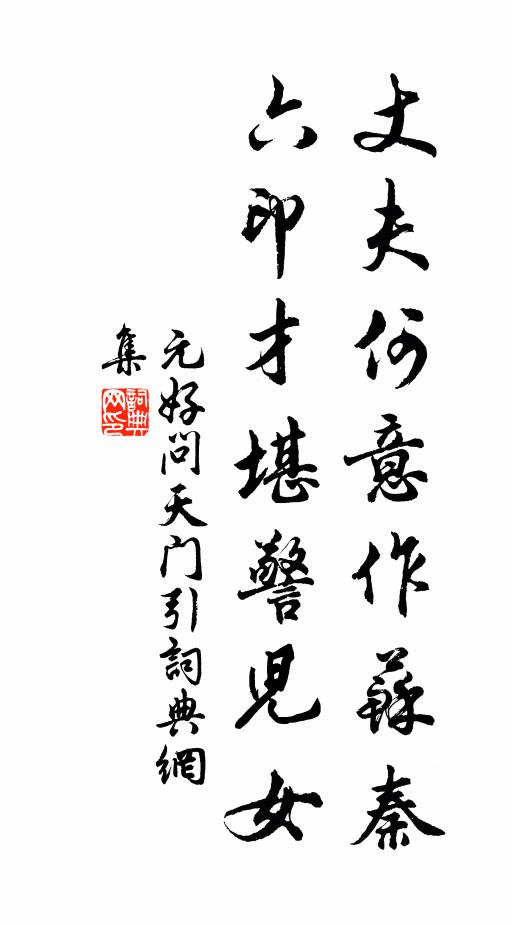 丈夫何意作蘇秦
六印才堪警児女
元好问天门引詞典網
集
詞典
网印